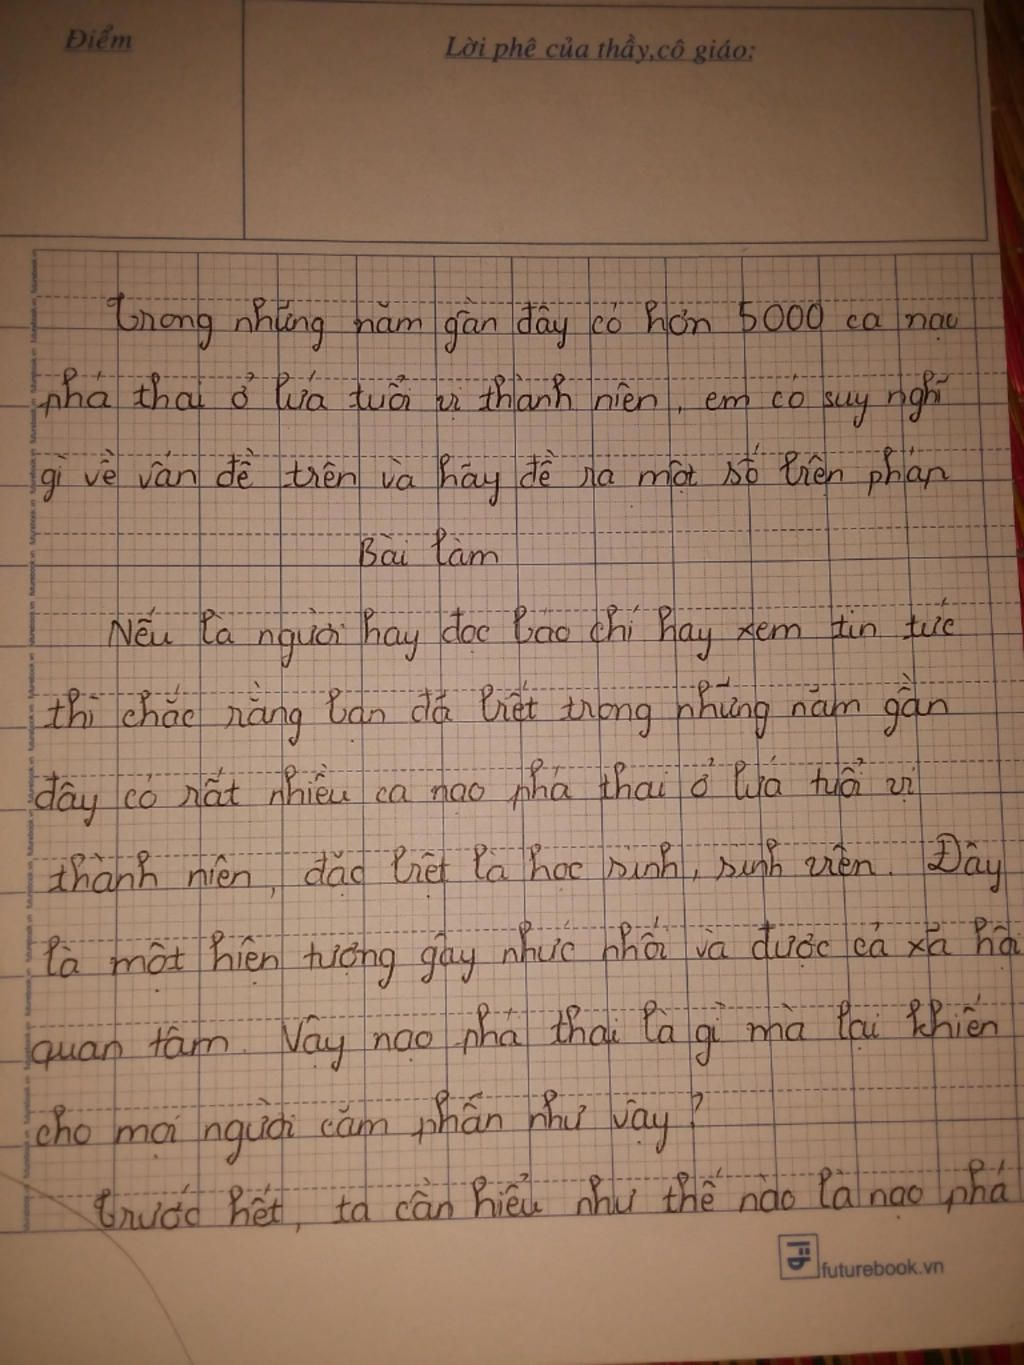 Điểm
Lời phê của thầy,cô giáo:
Trong những năm gần đây có hơn 5000 ca nạo
phá thai ở lứa tuổi vị thành niên, em có suy nghĩ
gì về vấn đề trên và hãy đề ra một số biện pháp
Bài làm
Nếu là người hay đọc báo chí hay xem tin tức
thì chắc rằng bạn đã biết trong những năm gần
đây có rất nhiều ca nạo phá thai ở lứa tuổi vị
thành niên, đặc biệt là học sinh, sinh viên. Đây
là một hiện tượng gây nhức nhối và được cả xã hội
quan tâm. Vậy nạo phá thai là gì mà lại khiến
cho mọi người căm phẫn như vậy?
Trước hết, ta cần hiểu như thế nào là nạo phá
futurebook.vn